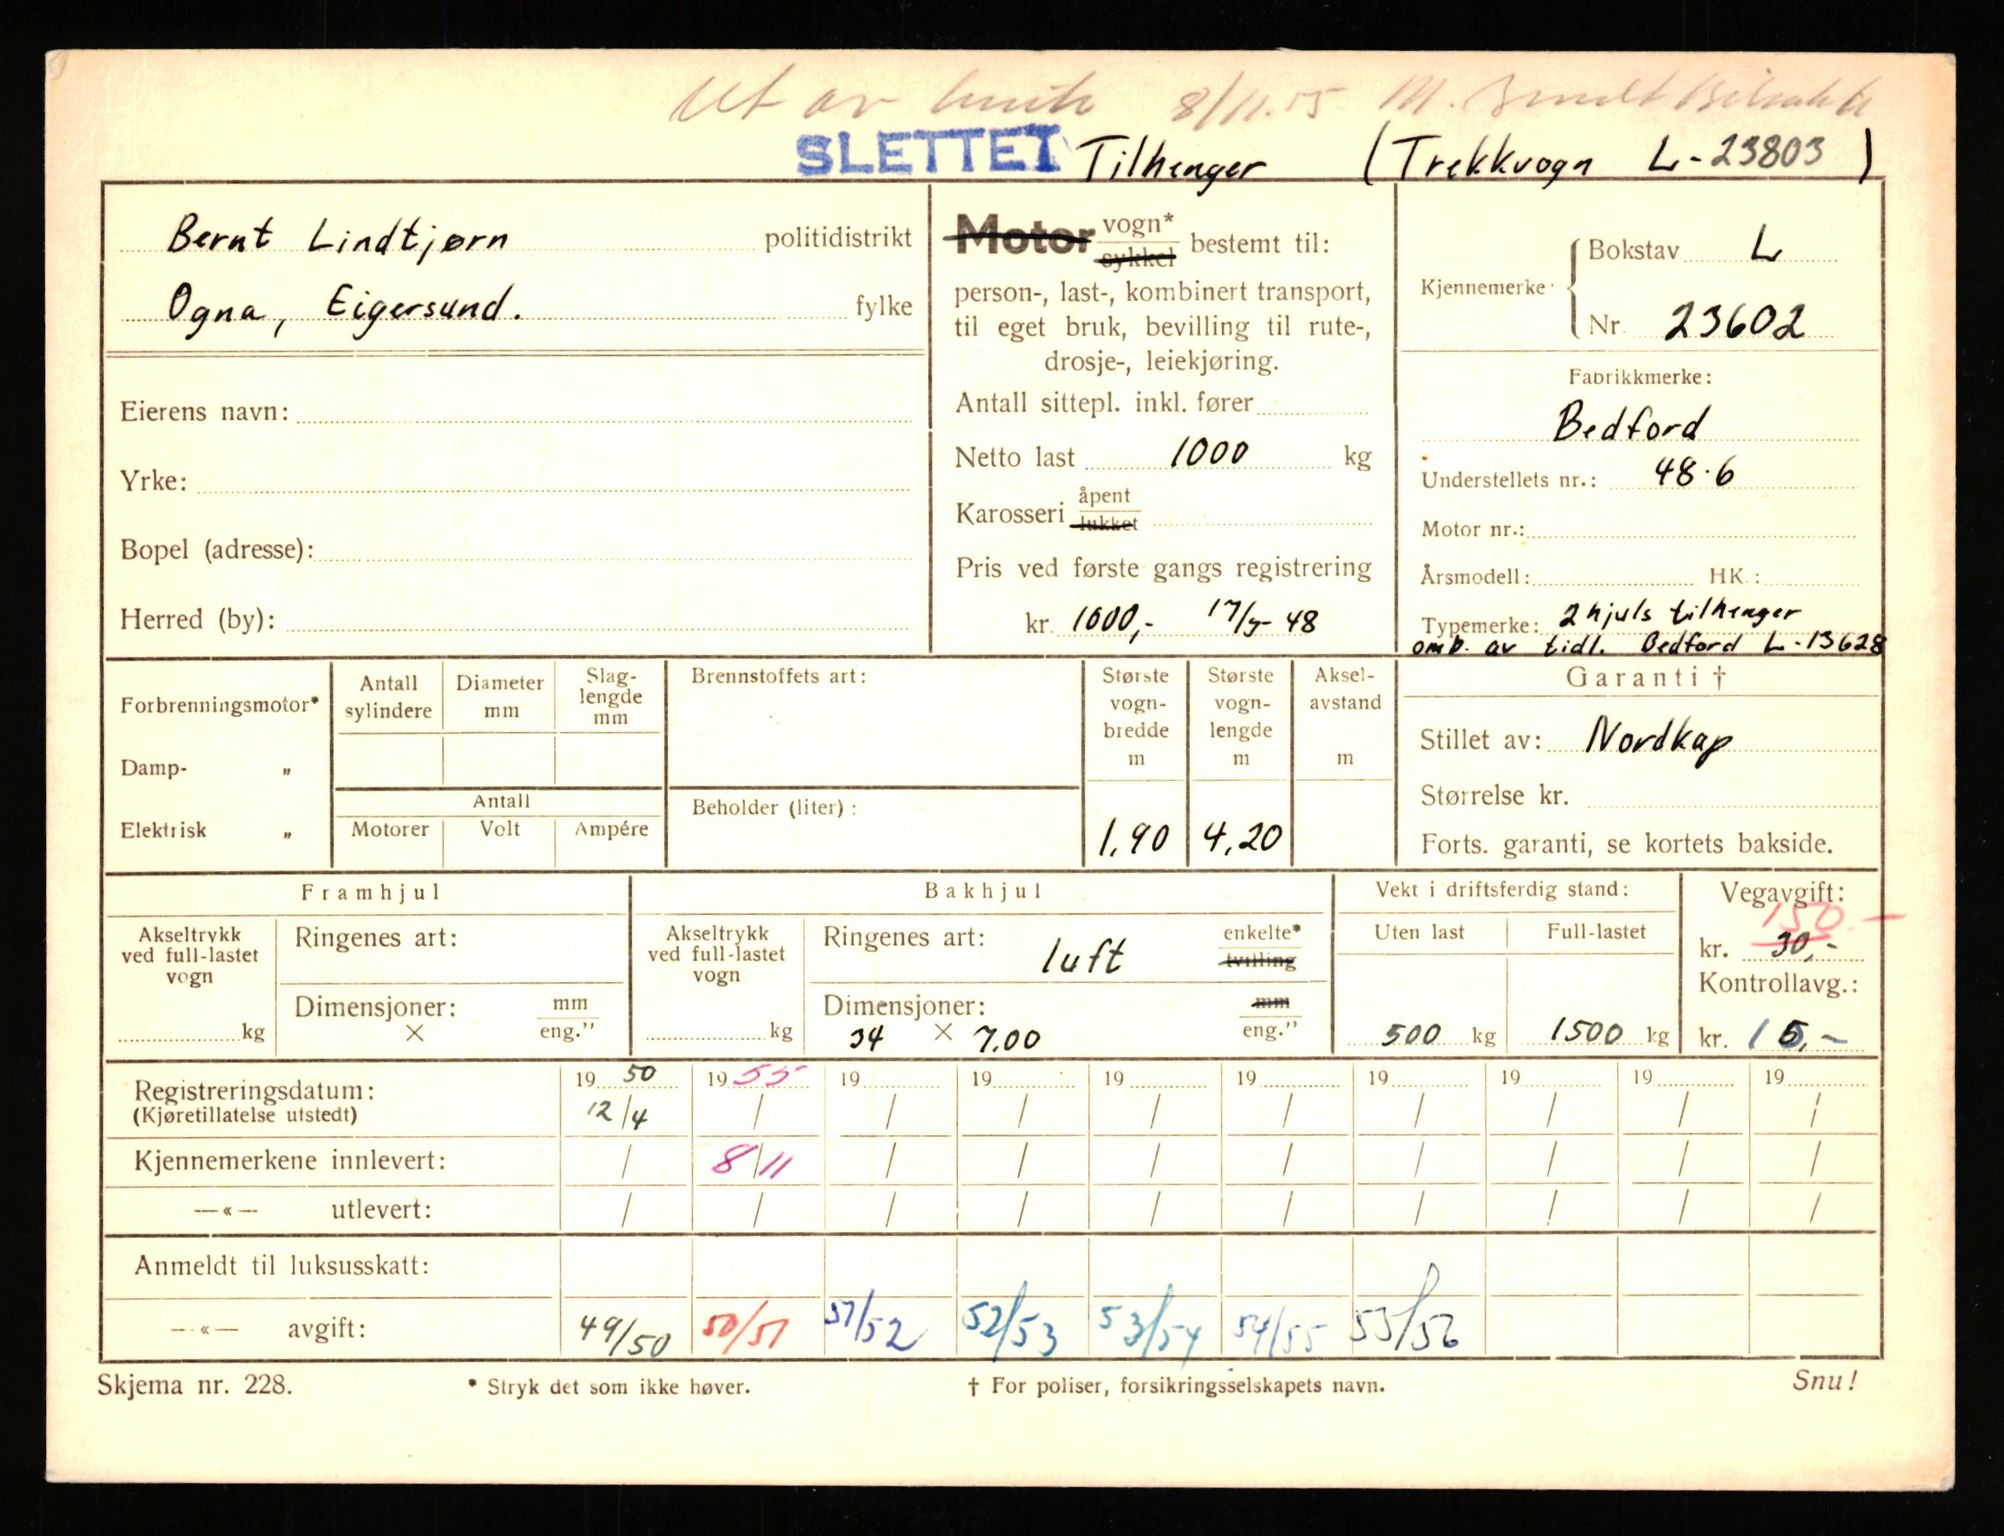 Ut av bruk 8/11.55
SLETTET Tilhenger (Trekkvogn L-23803)
Bernt Lindtjørn politidistrikt
Ogna, Eigersund. fylke
Eierens navn:
Yrke:
Bopel (adresse):
Herred (by):
Motor vogn* sykkel bestemt til:
person-, last-, kombinert transport,
til eget bruk, bevilling til rute-,
drosje-, leiekjøring.
Antall sittepl. inkl. fører
Netto last 1000 kg
Karosseri åpent lukket
Pris ved første gangs registrering
kr. 1000,- 17/5-48
Kjennemerke
Bokstav L
Nr. 23602
Fabrikkmerke:
Bedford
Understellets nr.: 48.6
Motor nr.:
Årsmodell: HK.:
Typemerke: 2 hjuls tilhenger
omb. av tidl. Bedford L-13628
Forbrenningsmotor*
Damp- „
Elektrisk „
Antall sylindere
Diameter mm
Slag-lengde mm
Antall
Motorer Volt Ampére
Brennstoffets art:
Beholder (liter):
Største vogn-bredde m
1,90
Største vogn-lengde m
4,20
Aksel-avstand m
Garanti †
Stillet av: Nordkap
Størrelse kr.
Forts. garanti, se kortets bakside.
Framhjul
Akseltrykk ved full-lastet vogn
kg
Ringenes art:
Dimensjoner: mm
× eng.”
Bakhjul
Akseltrykk ved full-lastet vogn
kg
Ringenes art: luft enkelte* tvilling
Dimensjoner: mm
34 × 7.00 eng.”
Vekt i driftsferdig stand:
Uten last Full-lastet
500 kg 1500 kg
Vegavgift:
150.-
kr. 30,-
Kontrollavg.:
kr. 15,-
Registreringsdatum: 19 50 19 55 19 19 19 19 19 19 19 19
(Kjøretillatelse utstedt) 12/4 / / / / / / / / /
Kjennemerkene innlevert: / 8/11 / / / / / / / /
—«— utlevert: / / / / / / / / / /
Anmeldt til luksusskatt:
—«— avgift: 49/50 50/51 51/52 52/53 53/54 54/55 55/56
Skjema nr. 228. * Stryk det som ikke høver. † For poliser, forsikringsselskapets navn. Snu!